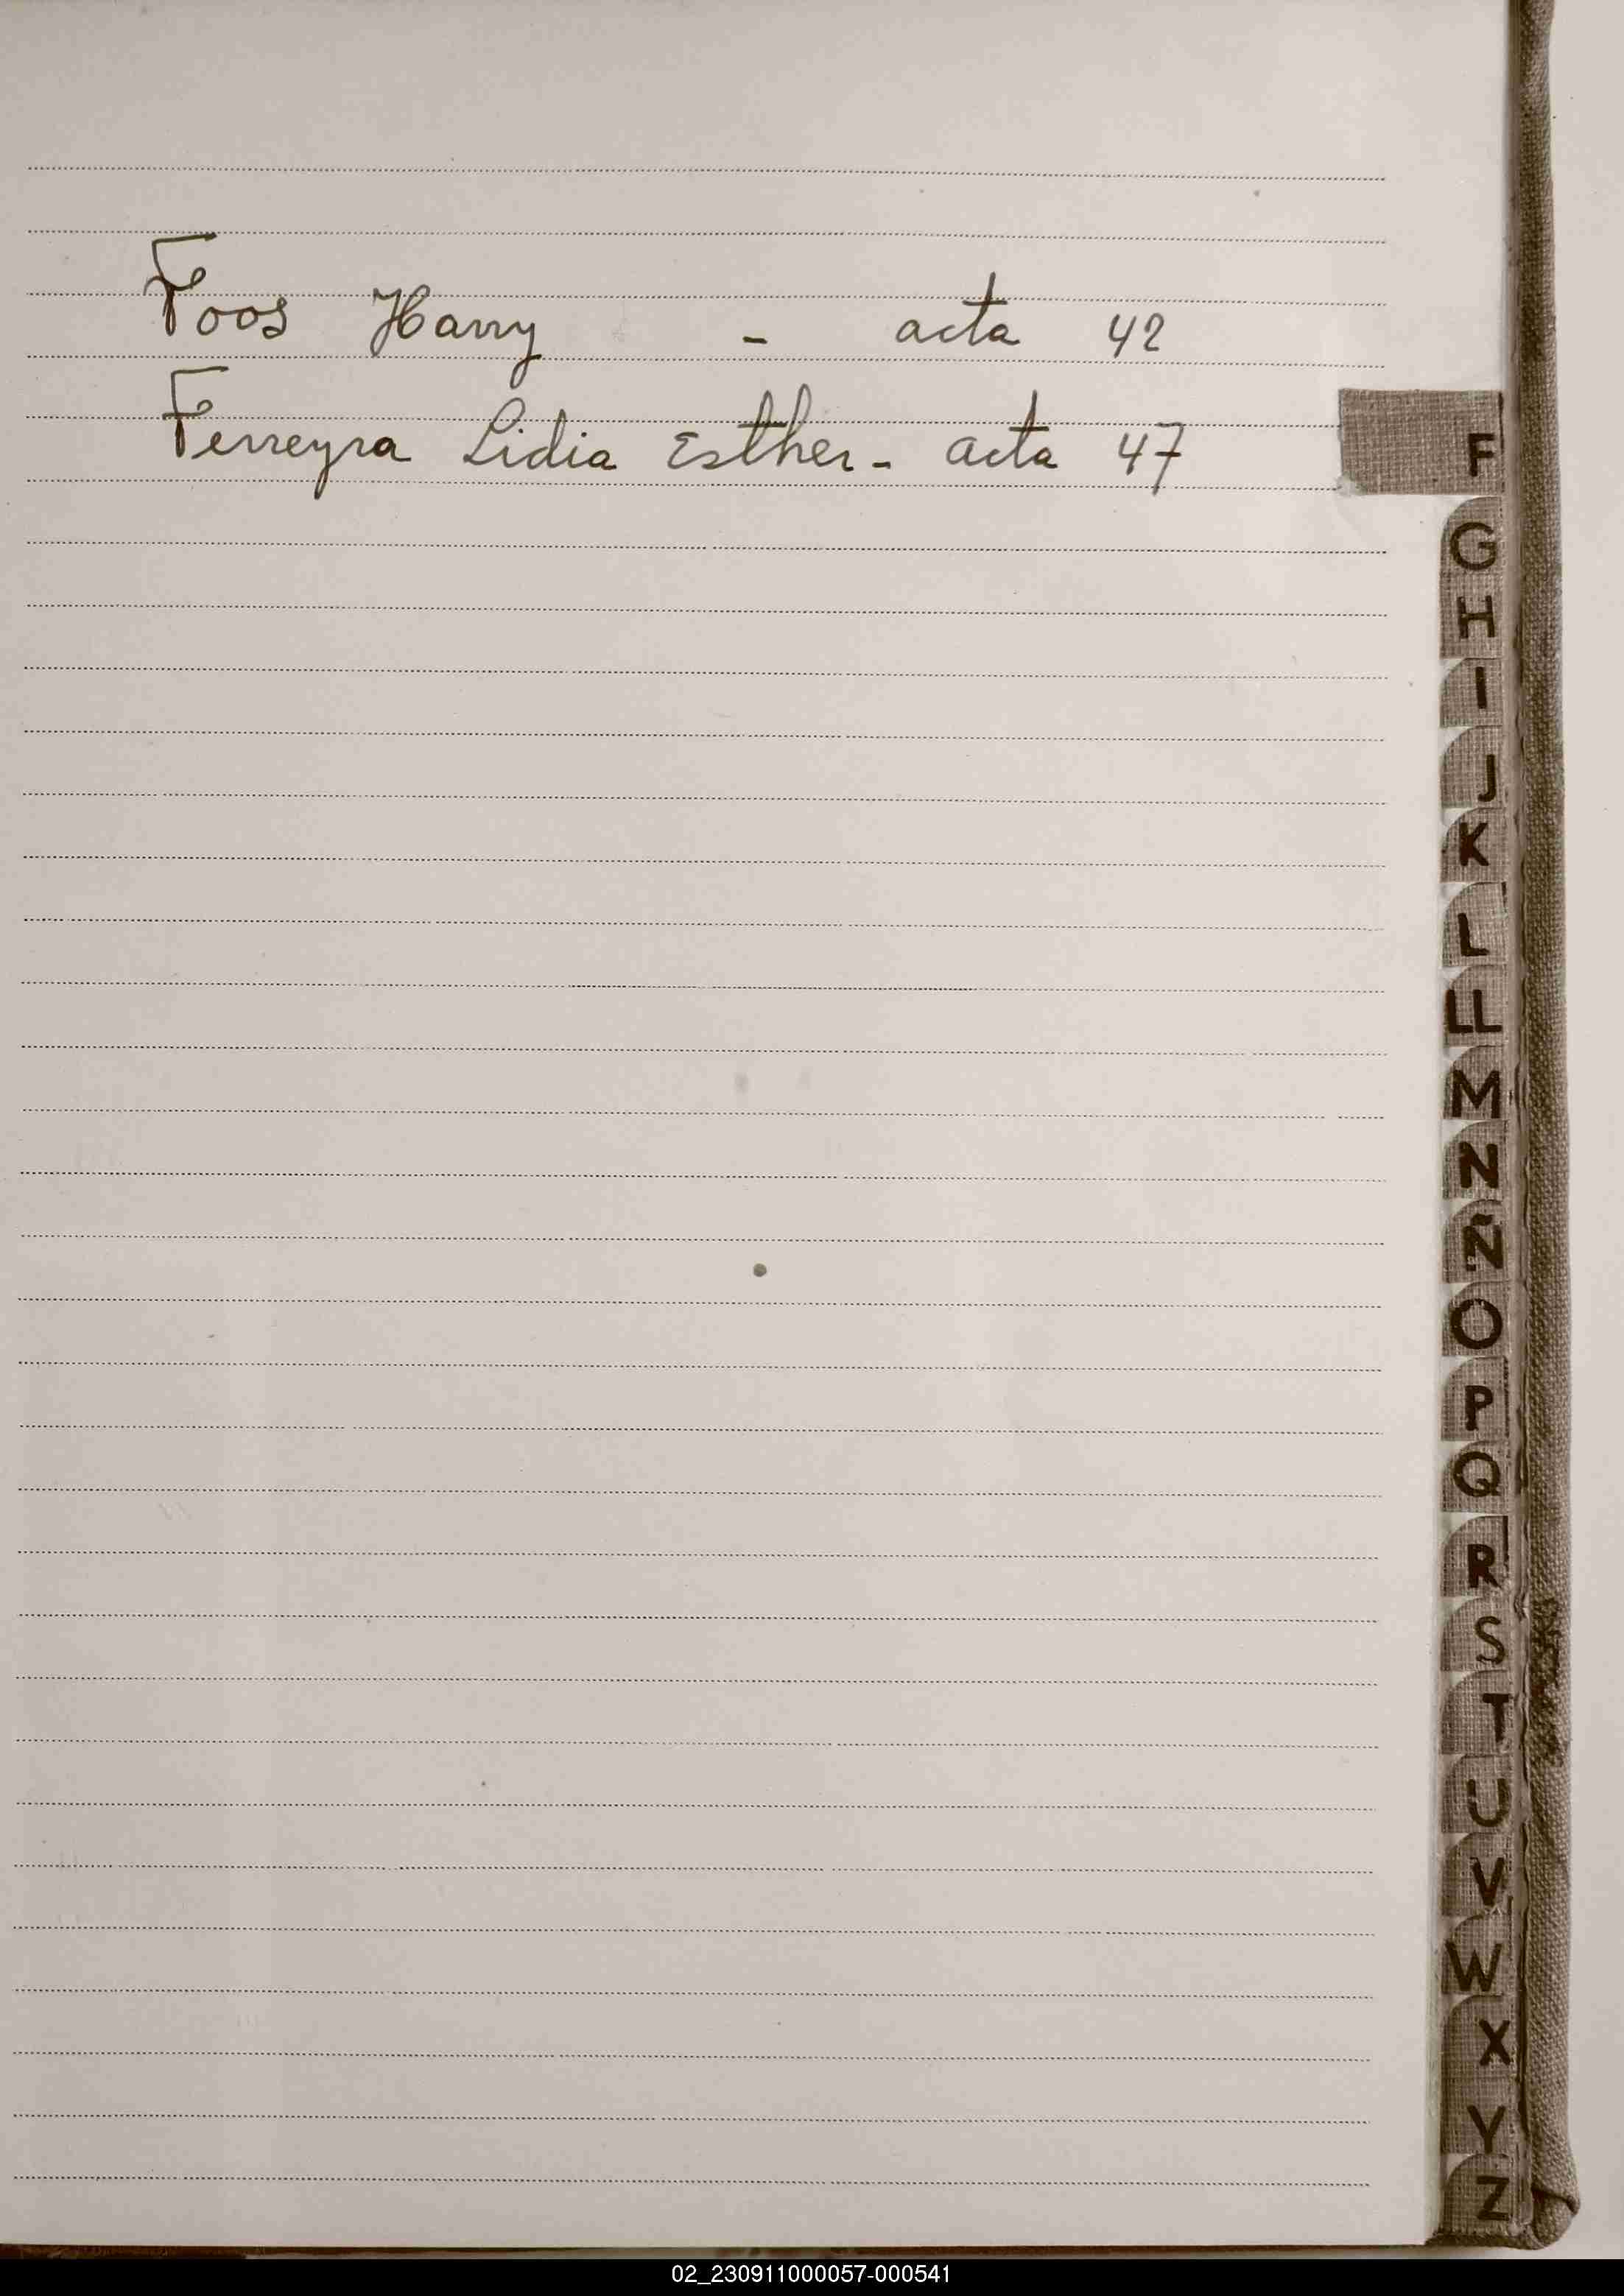 Foos Harry - acta 42
Ferreyra Lidia Esther - acta 47
F
G
H
I
J
K
L
LL
M
N
Ñ
O
P
Q
R
S
T
U
V
W
X
Y
Z
02_230911000057-000541